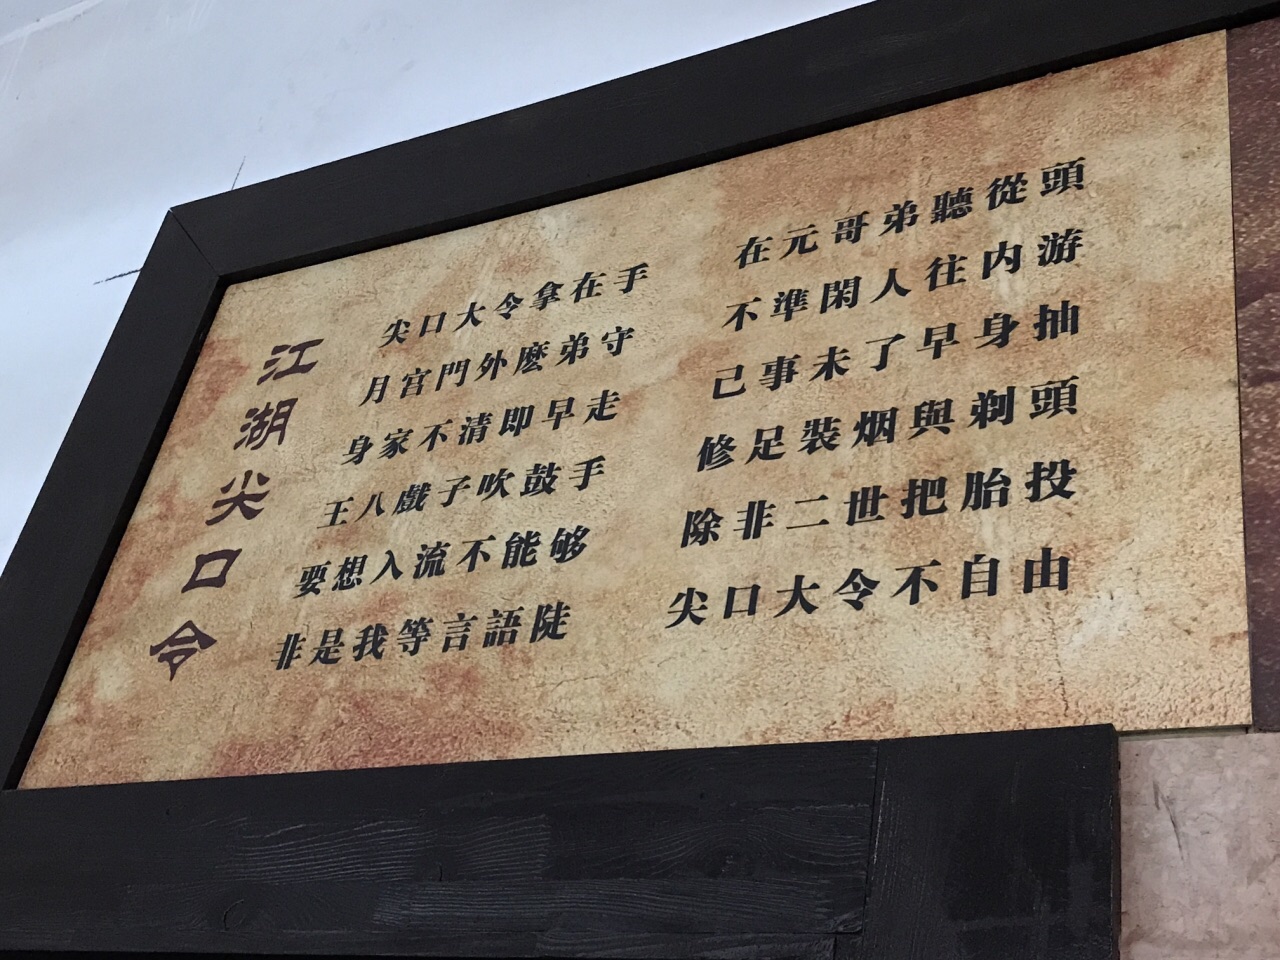 江湖尖口令
尖口大令拿在手 在元哥弟聽從頭
月宫門外麽弟守 不準閑人往内游
身家不清即早走 己事未了早身抽
王八戲子吹鼓手 修足裝烟與剃頭
要想入流不能够 除非二世把胎投
非是我等言語陡 尖口大令不自由